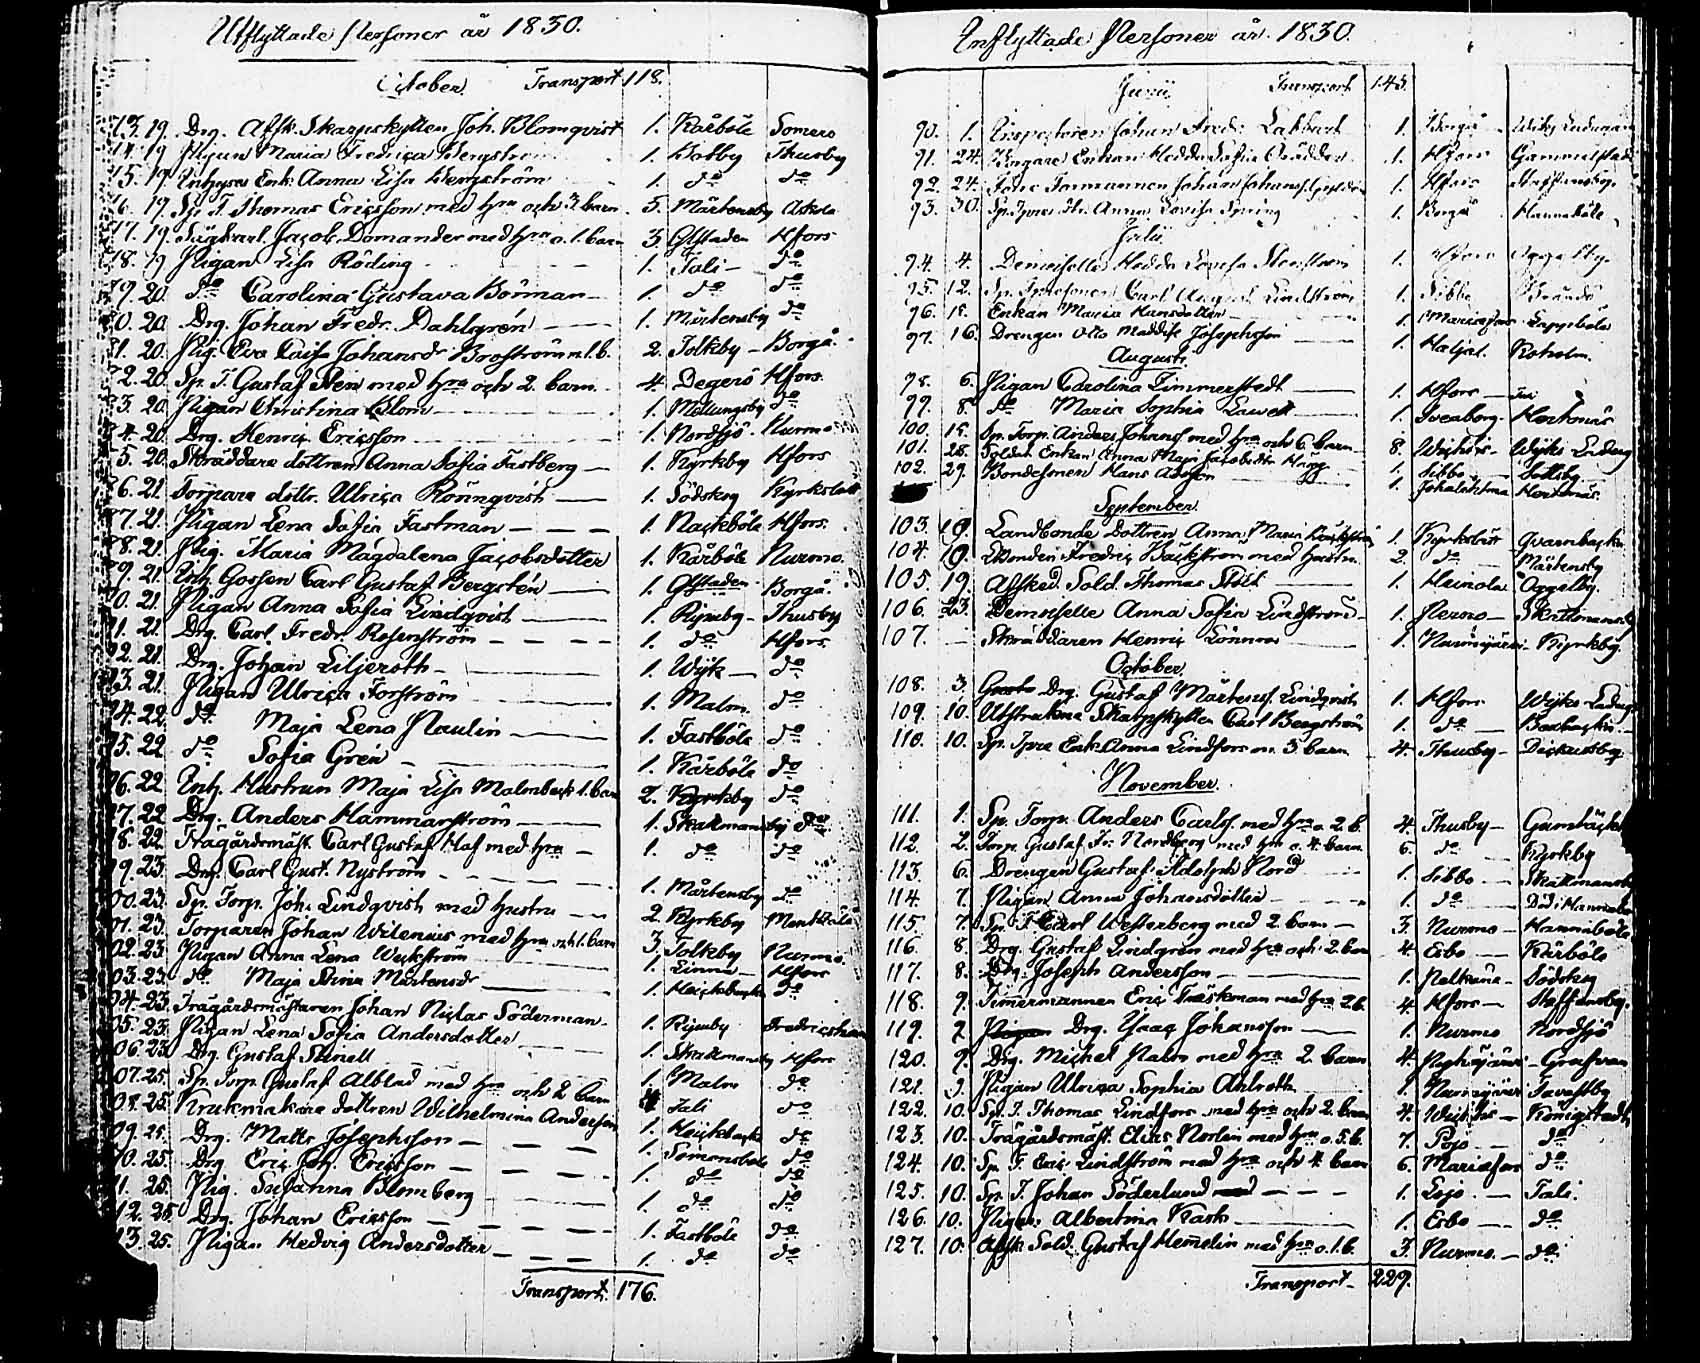 Utflyttade Personer år 1830.
October. Transport 118.
13. 19. Drg. Afsk. Skarpskytten Joh. Blomqvist 1. Kårböle Somero
14. 19 Pigan Maria Fredrica Bergström 1. Thusby
15. 19. Inhyses Enk. Anna Lisa Bergström 1. do do
16. 19. Sp. T. Thomas Ericsson med hru och 3 barn 5. Mårtensby Askola
17. 19. Jacob Domander med hru o. 1. barn 3. Glfstaden Hfors
18. 19 Pigan Lisa Röding 1. Tali do
19. 20. do Carolina Gustava Borman 1. do do
20. 20. Drg. Johan Fredr. Dahlgrén 1. Mårtensby do
21. 20. Pig. Eva Caisa Johansdr Broström m. 1. b. 2. Tolkby Borgå.
22. 20. Sp. T. Gustaf Sten med hru och 2. barn 4. Degerö Hfors.
23. 20. Pigan Christina Blom 1. Mellungsby do
24. 20. Drg. Henric Ericsson 1. Nordsjö Nurmo
25. 20. Skräddare dottren Anna Sofia Fastberg 1. Kyrkby Hfors
26. 21. Torpare dottr. Ulrica Rönnqvist 1. Södskog Kyrkslätt
27. 21. Pigan Lena Sofia Fastman 1. Nackböle Hfors.
28. 21. Pig. Maria Magdalena Jacobsdotter 1. Kårböle Nurmo.
29. 21. Inh. Gossen Carl Gustaf Bergstén 1. Glfstaden Borgå.
30. 21. Pigan Anna Sofia Lindqvist 1. Ripuby Thusby
31. 21. Drg. Carl Fredr. Rosenström 1. do Hfors.
32. 21 Drg. Johan Liljeroth 1. Wijk do
33. 21. Pigan Ulrica Forström 1. Malm do
34. 22. do Maja Lena Paulin 1. Fastböle do
35. 22 do Sofia Grén 1. Kårböle do
36. 22. Inh. Hustrun Maja Lisa Malmbeck 1. barn 2. Kyrkby do
37. 22 Drg. Anders Hammarström 1. Skattmansby do
38. 22. Trägårdsmäst. Carl Gustaf Haf med hru 1. do do
39. 23. Drg. Carl Gust. Nyström 1. Mårtensby do
00. 23. Sp. Torp. Joh. Lindqvist med hustru 2. Kyrkby
01. 23. Torparen Johan Wilenius med hru och 1. barn 3. Tolkby Nurmo.
02. 23. Pigan Anna Lena Wickström 1. Linna Hfors
03. 23. do Maja Stina Mårtensdr 1. Heickbacka do
04. 23. Trägårdsmästaren Johan Niclas Söderman 1. Ripuby Fredricsham
05. 23. Pigan Lena Sofia Andersdotter 1. Skattmansby Hfors
06. 23. Drg. Gustaf Stenell 1. Malm do
07. 25. Sp. Torp. Gustaf Alblad med hru och 2 barn 4 Tali do
08. 25. Krukmakare dottren Wilhelmina Andersson 1. Heickbacka do
09. 25. Drg. Matts Josephsson 1. Simonsböle do
10. 25. Drg. Eric Joh. Ericsson 1. do do
11. 25. Pig. Susanna Blomberg 1. do do
12. 25. Drg. Johan Ericsson 1. Fastböle do
13. 25. Pigan Hedvig Andersdotter 1. do do
Transport. 176.
Inflyttade Personer år 1830.
Junii Transport 145.
90. 1. Inspectoren Johan Fredr. 1. Borgå Wiks
91. 24. Borgare Enkan Hedda Sofia 1. Hfors Gammelstad
92. 24. Timmermannen Johan 1. Hfors Staffansby
93. 30. Anna Lovisa Spring 1. Borgå Hannaböle
Julii
94. 4. Demoiselle Hedda Lovisa 1. Hfors
95. 12. Carl August Lindström 1. Sibbo Brändö
96. 15. Enkan Maria Hansdotter 1. Lappböle
97. 16. Drengen Otto Maddis Josephsson 1. Botholm.
Augusti
98. 6. Pigan Carolina Zimmerstedt 1. Hfors
99. 8. do Maria Sophia 1. Sveaborg Hertonäs
100. 15. Sp. Torp. Anders Johanss. med hru och 6. barn 8. Wichtis Wijks
101. 28. Soldat Enkan Anna Maja 1. Sibbo
102. 29. Bondesonen Hans 1. Hertonäs
September
103. 19. Landbonde Dottren Anna Maria 1. Kyrkslätt Qvarnbacka
104. 19. Bonden Fredric Bäckström med hustru 2. do Mårtensby
105 19. Afsked. Sold. Thomas 1. Heinola Oggelby.
106. 23. Demoiselle Anna Sofia Lindström 1. Perno Skattmansby
107. Skräddaren Henric Lönnros 1. Nurmijärvi Kyrkby.
October
108. 3. Drg. Gustaf Mårtenss. Lindqvist 1. Hfors Wijks Ladug.
109. 10. Utstrukna Skarpskytten Carl Bergström 1. do
110. 10. Sp. Jpre Enk. Anna Lindfors m. 3 barn 4. Thusby Dickursby
November.
111. 1. Sp. Torp. Anders Carlss. med hru o. 2. b. 4. Thusby Gumbäcka
112. 2. Torp. Gustaf Fr. Nordberg med hru o. 4. barn 6. do Kyrkby
113. 6. Drengen Gustaf Adolph Nord 1. Sibbo Skattmansby
114. 7. Pigan Anna Johansdotter 1. do
115. 7. Sp. T. Carl Westerberg med 2. barn 3. Nurmo Hannaböle
116. 8. Drg. Gustaf Lindgrén med hru och 2. barn 4. Esbo Kårböle
117. 8. Drg. Joseph Andersson 1. Södskog
118. 9. Timermannen Eric Träskman med hru 2 b. 4. Hfors Staffansby.
119. 9. Drg. Isaac Johansson 1. Nurmo Nordsjö
120. 9. Drg. Michel Palm med hru 2. barn 4.
121. 9. Pigan Ulrica Sophia Ahlroth 1. Nurmijärvi Tavastby
122. 10. Sp. T. Thomas Lindfors med hru och 2. barn 4. Wichtis Königstedt
123. 10. Trägårdsmäst. Elias Norlin med hru o. 5. b. 7. Pojo do
124. 10. Sp. T. Eric Lindström med hru och 4. barn 6. Mariefors do
125. 10. Sp. T. Johan Söderlund 1. Lojo Tali.
126. 10. Pigan Albertina Kask 1. Esbo do
127. 10. Afsk. Sold. Gustaf Hemelin med hru o. 1. b. 3. Nurmo do
Transport 229.